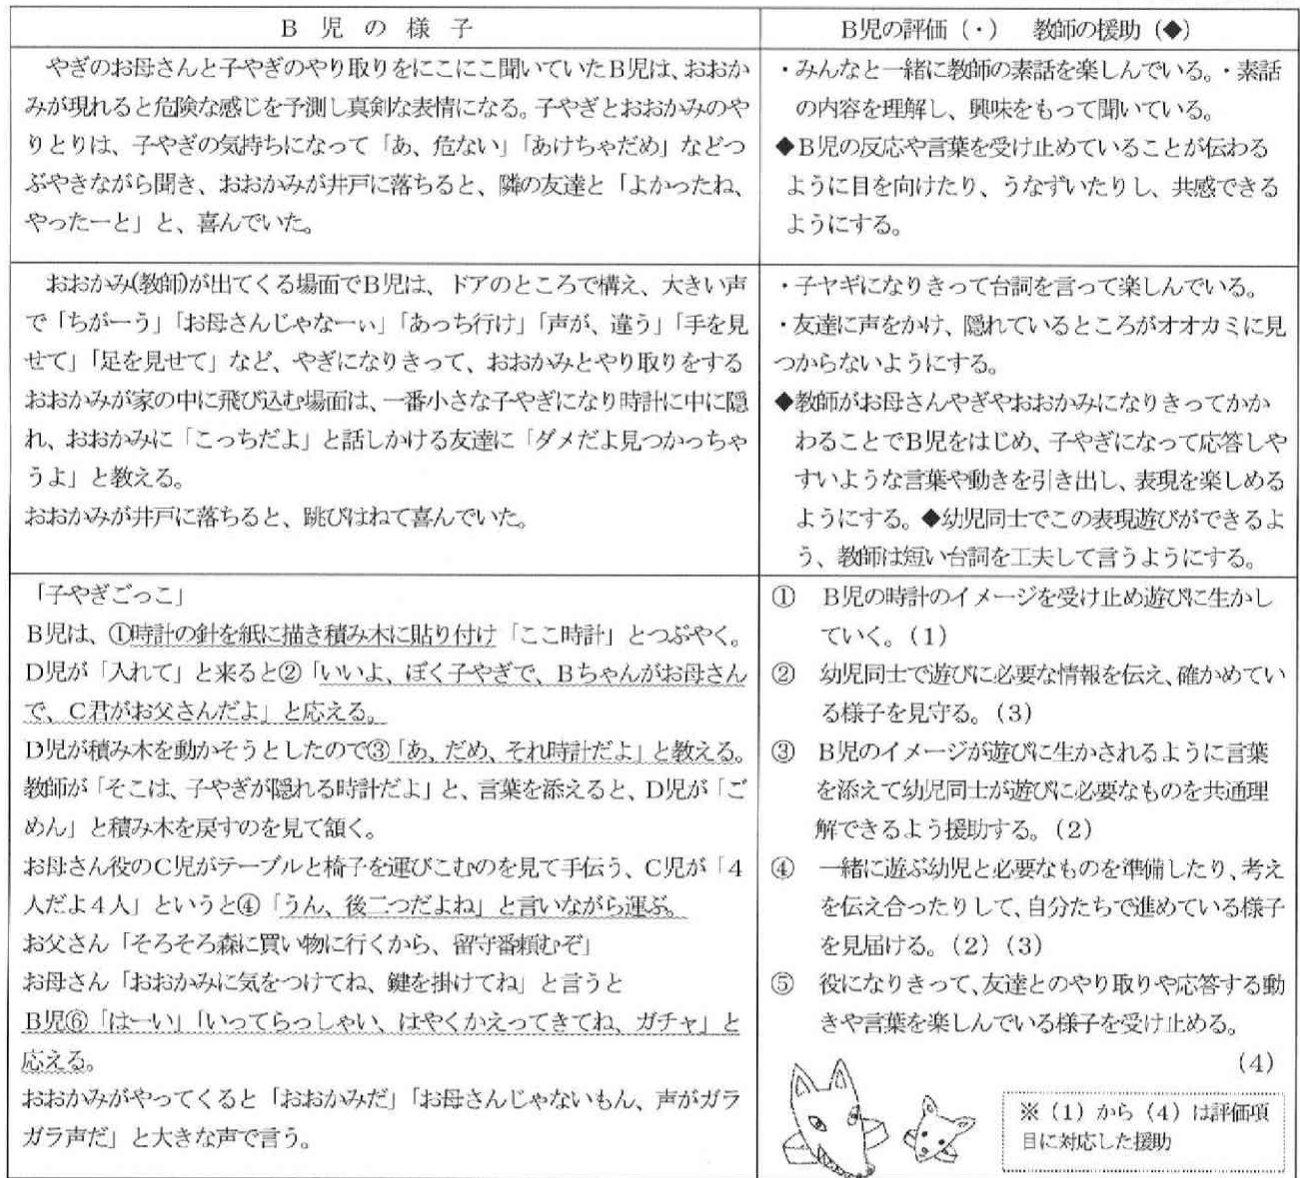 B 児 の 様 子
B児の評価（・）　教師の援助（◆）
やぎのお母さんと子やぎのやり取りをにこにこ聞いていたB児は、おおか
みが現れると危険な感じを予測し真剣な表情になる。子やぎとおおかみのや
りとりは、子やぎの気持ちになって「あ、危ない」「あけちゃだめ」などつ
ぶやきながら聞き、おおかみが井戸に落ちると、隣の友達と「よかったね、
やったーと」と、喜んでいた。
・みんなと一緒に教師の素話を楽しんでいる。・素話
の内容を理解し、興味をもって聞いている。
◆B児の反応や言葉を受け止めていることが伝わる
ように目を向けたり、うなずいたりし、共感できる
ようにする。
おおかみ(教師)が出てくる場面でB児は、ドアのところで構え、大きい声
で「ちがーう」「お母さんじゃなーぃ」「あっち行け」「声が、違う」「手を見
せて」「足を見せて」など、やぎになりきって、おおかみとやり取りをする
おおかみが家の中に飛び込む場面は、一番小さな子やぎになり時計に中に隠
れ、おおかみに「こっちだよ」と話しかける友達に「ダメだよ見つかっちゃ
うよ」と教える。
おおかみが井戸に落ちると、跳びはねて喜んでいた。
・子ヤギになりきって台詞を言って楽しんでいる。
・友達に声をかけ、隠れているところがオオカミに見
つからないようにする。
◆教師がお母さんやぎやおおかみになりきってかか
わることでB児をはじめ、子やぎになって応答しや
すいような言葉や動きを引き出し、表現を楽しめる
ようにする。◆幼児同士でこの表現遊びができるよ
う、教師は短い台詞を工夫して言うようにする。
「子やぎごっこ」
B児は、①時計の針を紙に描き積み木に貼り付け「ここ時計」とつぶやく。
D児が「入れて」と来ると②「いいよ、ぼく子やぎで、Bちゃんがお母さん
で、C君がお父さんだよ」と応える。
D児が積み木を動かそうとしたので③「あ、だめ、それ時計だよ」と教える。
教師が「そこは、子やぎが隠れる時計だよ」と、言葉を添えると、D児が「ご
めん」と積み木を戻すのを見て頷く。
お母さん役のC児がテーブルと椅子を運びこむのを見て手伝う、C児が「4
人だよ4人」というと④「うん、後二つだよね」と言いながら運ぶ。
お父さん「そろそろ森に買い物に行くから、留守番頼むぞ」
お母さん「おおかみに気をつけてね、鍵を掛けてね」と言うと
B児⑥「はーい」「いってらっしゃい、はやくかえってきてね、ガチャ」と
応える。
おおかみがやってくると「おおかみだ」「お母さんじゃないもん、声がガラ
ガラ声だ」と大きな声で言う。
①　B児の時計のイメージを受け止め遊びに生かし
ていく。（1）
②　幼児同士で遊びに必要な情報を伝え、確かめてい
る様子を見守る。（3）
③　B児のイメージが遊びに生かされるように言葉
を添えて幼児同士が遊びに必要なものを共通理
解できるよう援助する。（2）
④　一緒に遊ぶ幼児と必要なものを準備したり、考え
を伝え合ったりして、自分たちで進めている様子
を見届ける。（2）（3）
⑤　役になりきって、友達とのやり取りや応答する動
きや言葉を楽しんでいる様子を受け止める。
（4）
※（1）から（4）は評価項
目に対応した援助